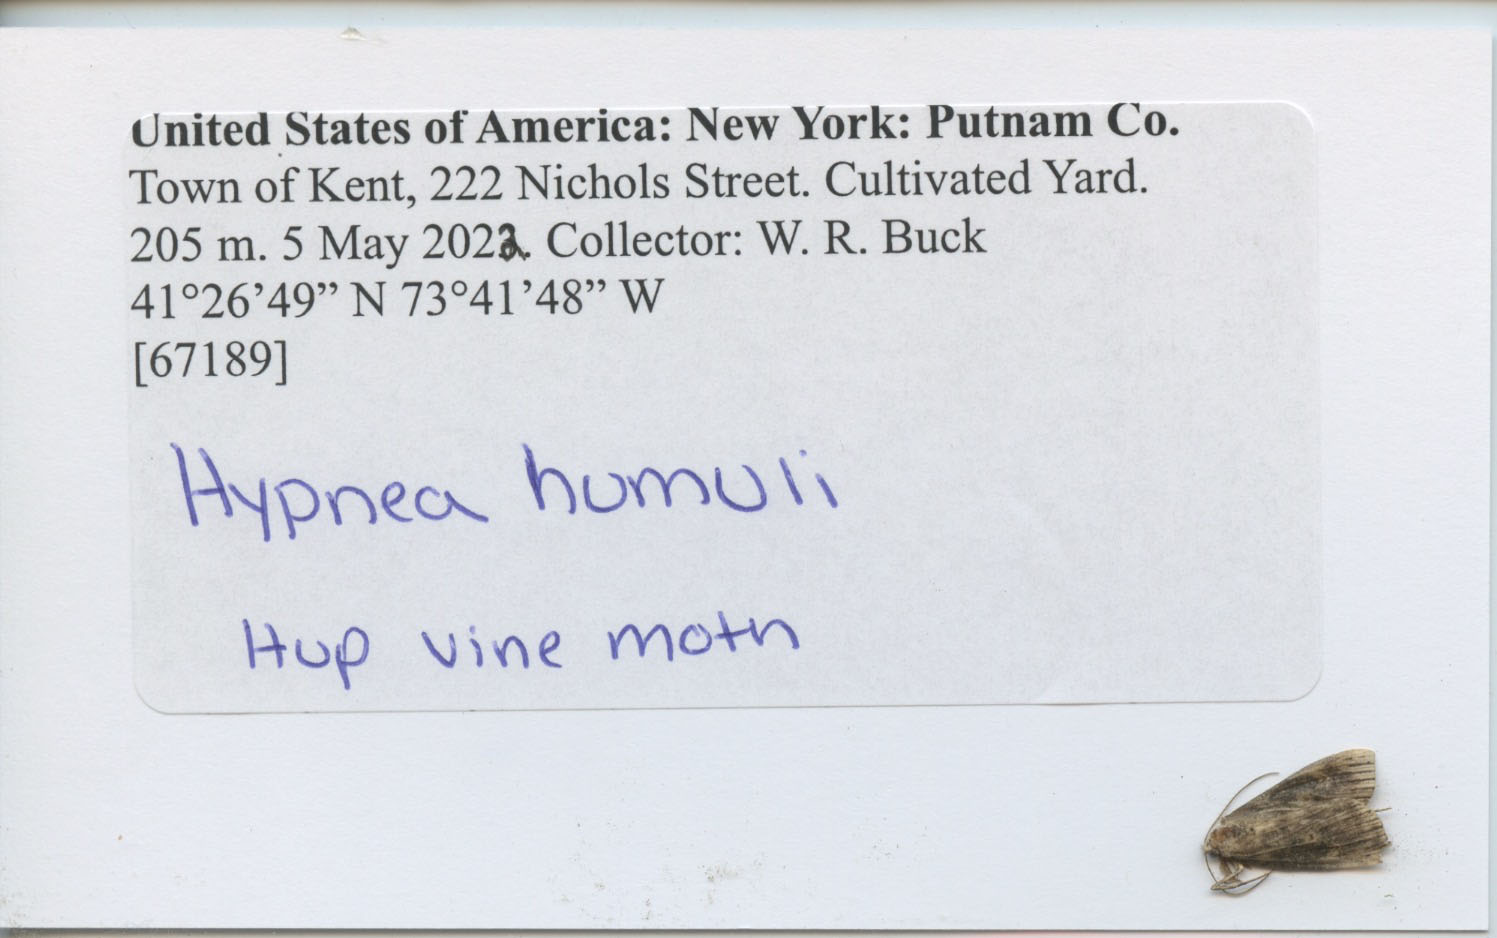 United States of America: New York: Putnam Co.
Town of Kent, 222 Nichols Street. Cultivated Yard.
205 m. 5 May 2022. Collector: W. R. Buck
41°26’49” N 73°41’48” W
[67189]
Hypnea humuli
Hup vine moth